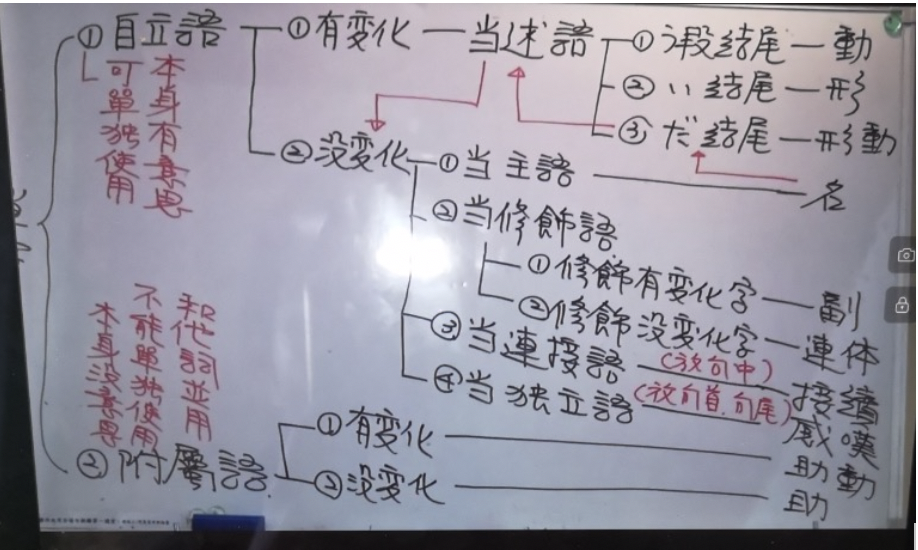 ①自立語
①有変化
当述語
①う段結尾
動
②い結尾
形
③だ結尾
形動
本身有意思
可單独使用
②没変化
①当主語
名
②当修飾語
①修飾有変化字
副
②修飾没変化字
連体
③当連接語
(放句中)
接續
④当独立語
(放句首.句尾)
感嘆
和他詞並用
不能單独使用
本身没意思
②附屬語
①有変化
助動
②没変化
助